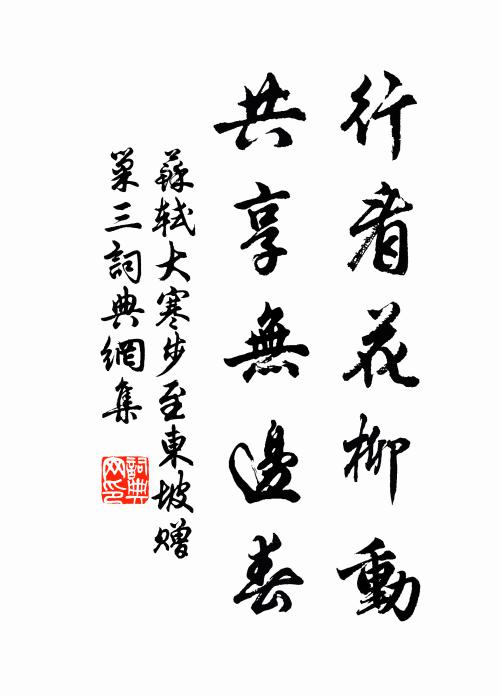 行看花柳動
共享無邊春
蘇軾大寒步至東坡贈
巢三詞典網集
詞典
网印